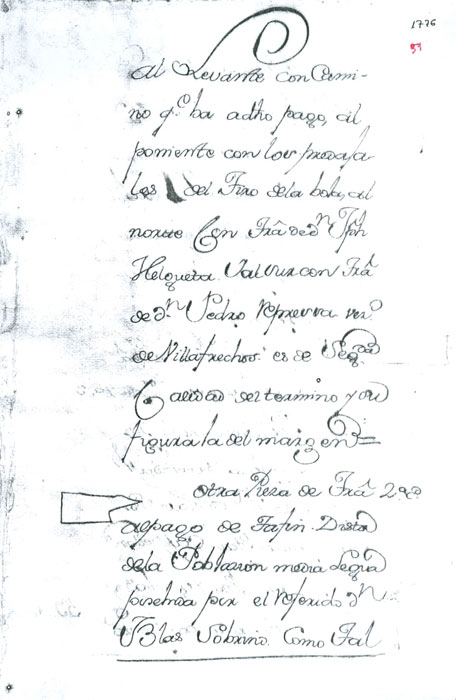 1776
al Levante con Cami-
no q.e ba a dho pago, al
poniente con los
les del Tiro de la bola, al
norte Con Trâ de dn Jph
Helgueta Val sur con Trâ
de dn Pedro
de Villafrechos: es de Segda
Calidad del termino y su
figura la del margen=
Otra Pieza de Trâ 2 qo
al pago de Tafin. Dista
de la Poblazion media Legua
posehida por el referido dn
Blas Sobrino. Como Tal